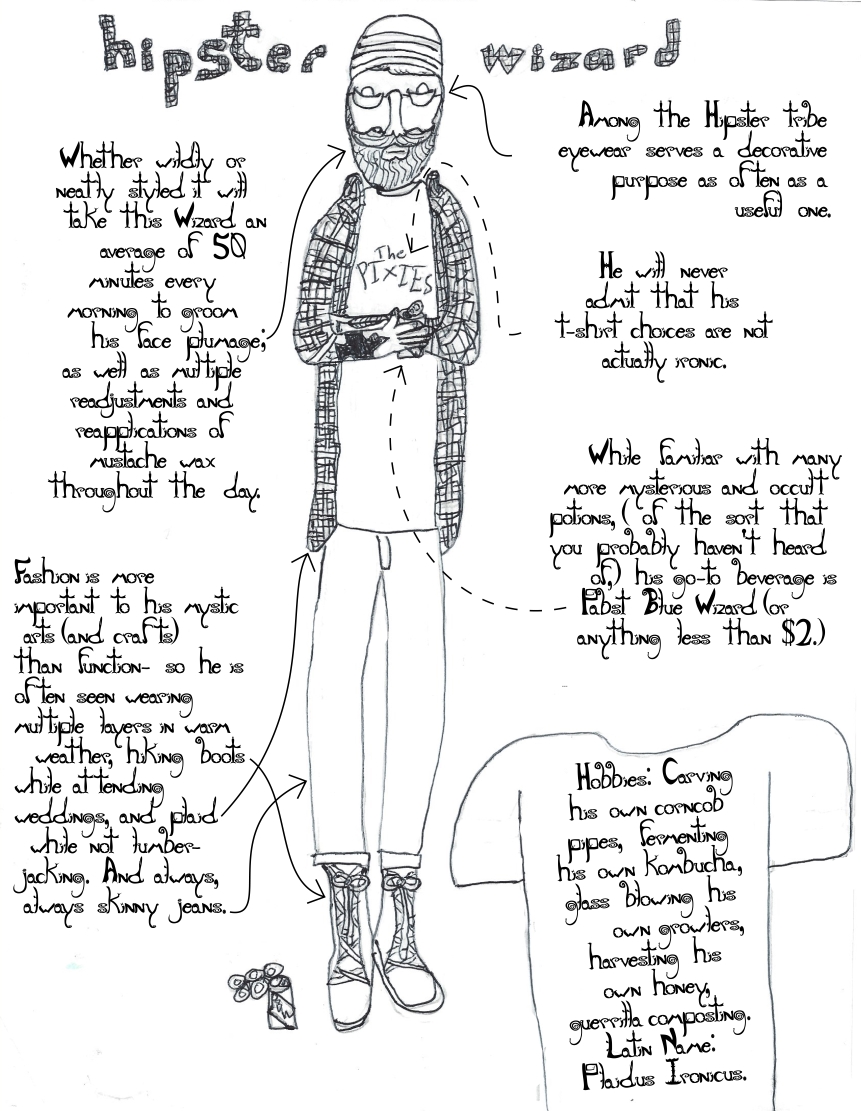 hipster wizard
Among the Hipster tribe
eyewear serves a decorative
purpose as often as a
useful one.
Whether wildly or
neatly styled it will
take this Wizard an
average of 50
minutes every
morning to groom
his face plumage;
as well as multiple
readjustments and
reapplications of
mustache wax
throughout the day.
The
PIXIES
He will never
admit that his
t-shirt choices are not
actually ironic.
While familiar with many
more mysterious and occult
potions, ( of the sort that
you probably haven't heard
of,) his go-to beverage is
Pabst Blue Wizard (or
anything less than $2.)
Fashion is more
important to his mystic
arts (and crafts)
than function- so he is
often seen wearing
multiple layers in warm
weather, hiking boots
while attending
weddings, and plaid
while not lumber-
jacking. And always,
always skinny jeans.
Hobbies: Carving
his own corncob
pipes, fermenting
his own kombucha,
glass blowing his
own growlers,
harvesting his
own honey,
guerrilla composting.
Latin Name:
Plaidus Ironicus.